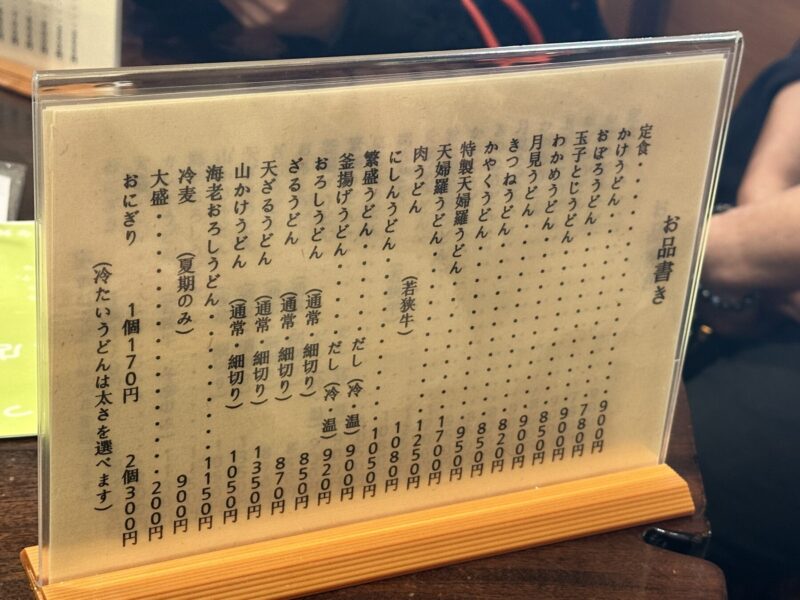 お品書き
定食・・・・・・・・・・・・・・900円
かけうどん・・・・・・・・・・・780円
おぼろうどん・・・・・・・・・・900円
玉子とじうどん・・・・・・・・・850円
わかめうどん・・・・・・・・・・900円
月見うどん・・・・・・・・・・・820円
きつねうどん・・・・・・・・・・850円
かやくうどん・・・・・・・・・・950円
特製天婦羅うどん・・・・・・・・1700円
天婦羅うどん・・・・・・・・・・1250円
肉うどん (若狭牛)・・・・・・・1080円
にしんうどん・・・・・・・・・・1050円
繁盛うどん・・・・だし (冷・温) 900円
釜揚げうどん・・・だし (冷・温) 920円
おろしうどん (通常・細切り) 850円
ざるうどん (通常・細切り) 870円
天ざるうどん (通常・細切り) 1350円
山かけうどん (通常・細切り) 1050円
海老おろしうどん・・・・・・・・1150円
冷麦 (夏期のみ) 900円
大盛・・・・・・・・・・・・・・200円
おにぎり 1個170円 2個300円
(冷たいうどんは太さを選べます)